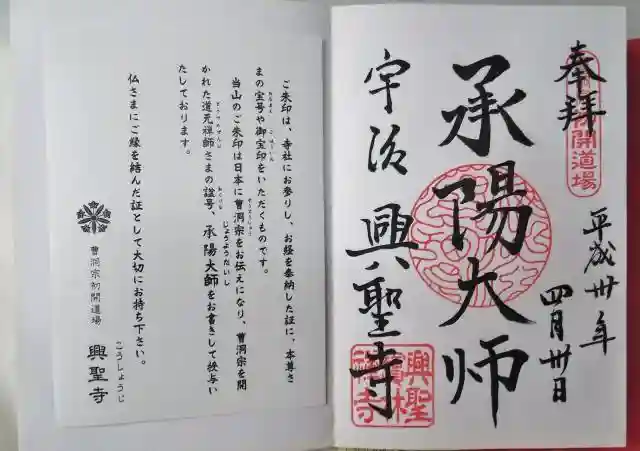 奉拝
開道場
平成卅年
四月卅日
承陽大师
宇治 興聖寺
興聖
寺
ご朱印は、寺社にお参りし、お経を奉納した証に、本尊さ
まの宝号や御宝印をいただくものです。
当山のご朱印は日本に曹洞宗をお伝えになり、曹洞宗を開
じょうようだいし
かれた道元禅師さまの諡号、承陽大師をお書きして授与い
たしております。
仏さまにご縁を結んだ証として大切にお持ち下さい。
こうしょうじ
曹洞宗初開道場 興聖寺